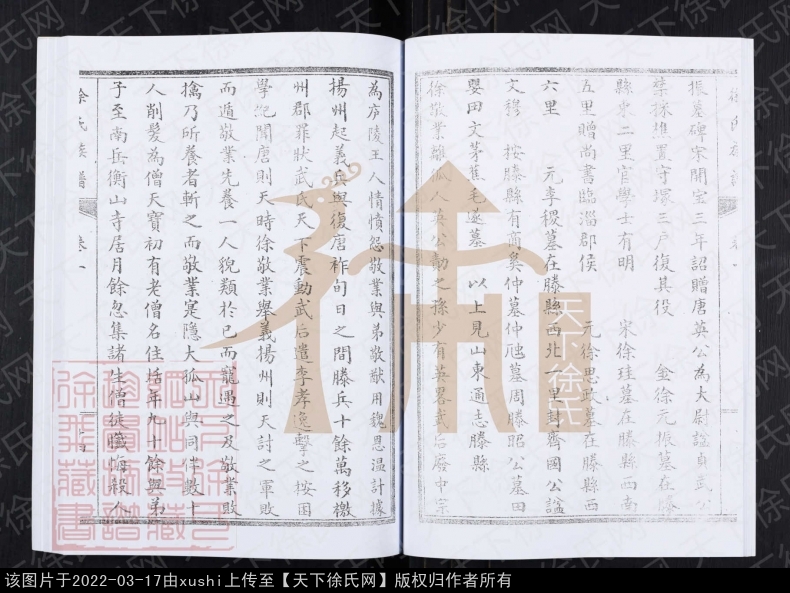 振墓碑宋開宝三年詔贈唐英公為大尉謚貞武公
禁採樵置守塚三戶復其役 金徐元振墓在滕
縣東二里官學士有明 宋徐珪墓在滕縣西南
五里贈尚書臨淄郡侯 元徐思政墓在滕縣西
六里 元李稷墓在滕縣西北一里封齊國公謚
文穆 按滕縣有商奚仲墓仲虺墓周滕昭公墓田
嬰田文茅焦毛遂墓 以上見山東通志滕縣
徐敬業離狐人英公勣之孫少有英畧武后廢中宗
為庐陵王人情憤怨敬業與弟敬猷用魏思温計據
揚州起義兵與復唐祚旬日之間滕兵十餘萬移檄
州郡罪狀武氏天下震動武后遣李孝逸擊之按困
學紀聞唐則天時徐敬業舉義揚州則天討之軍敗
而遁敬業先養一人貌類於已而寵遇之及敬業敗
擒乃所養者斬之而敬業寔隐大孤山與同伴數十
人削髮為僧天寶初有老僧名住括年九十餘與弟
子至南兵衡山寺居月餘忽集諸生僧徒懺悔殺人
徐氏族譜 卷一
天下徐氏
该图片于2022-03-17由xushi上传至【天下徐氏网】版权归作者所有